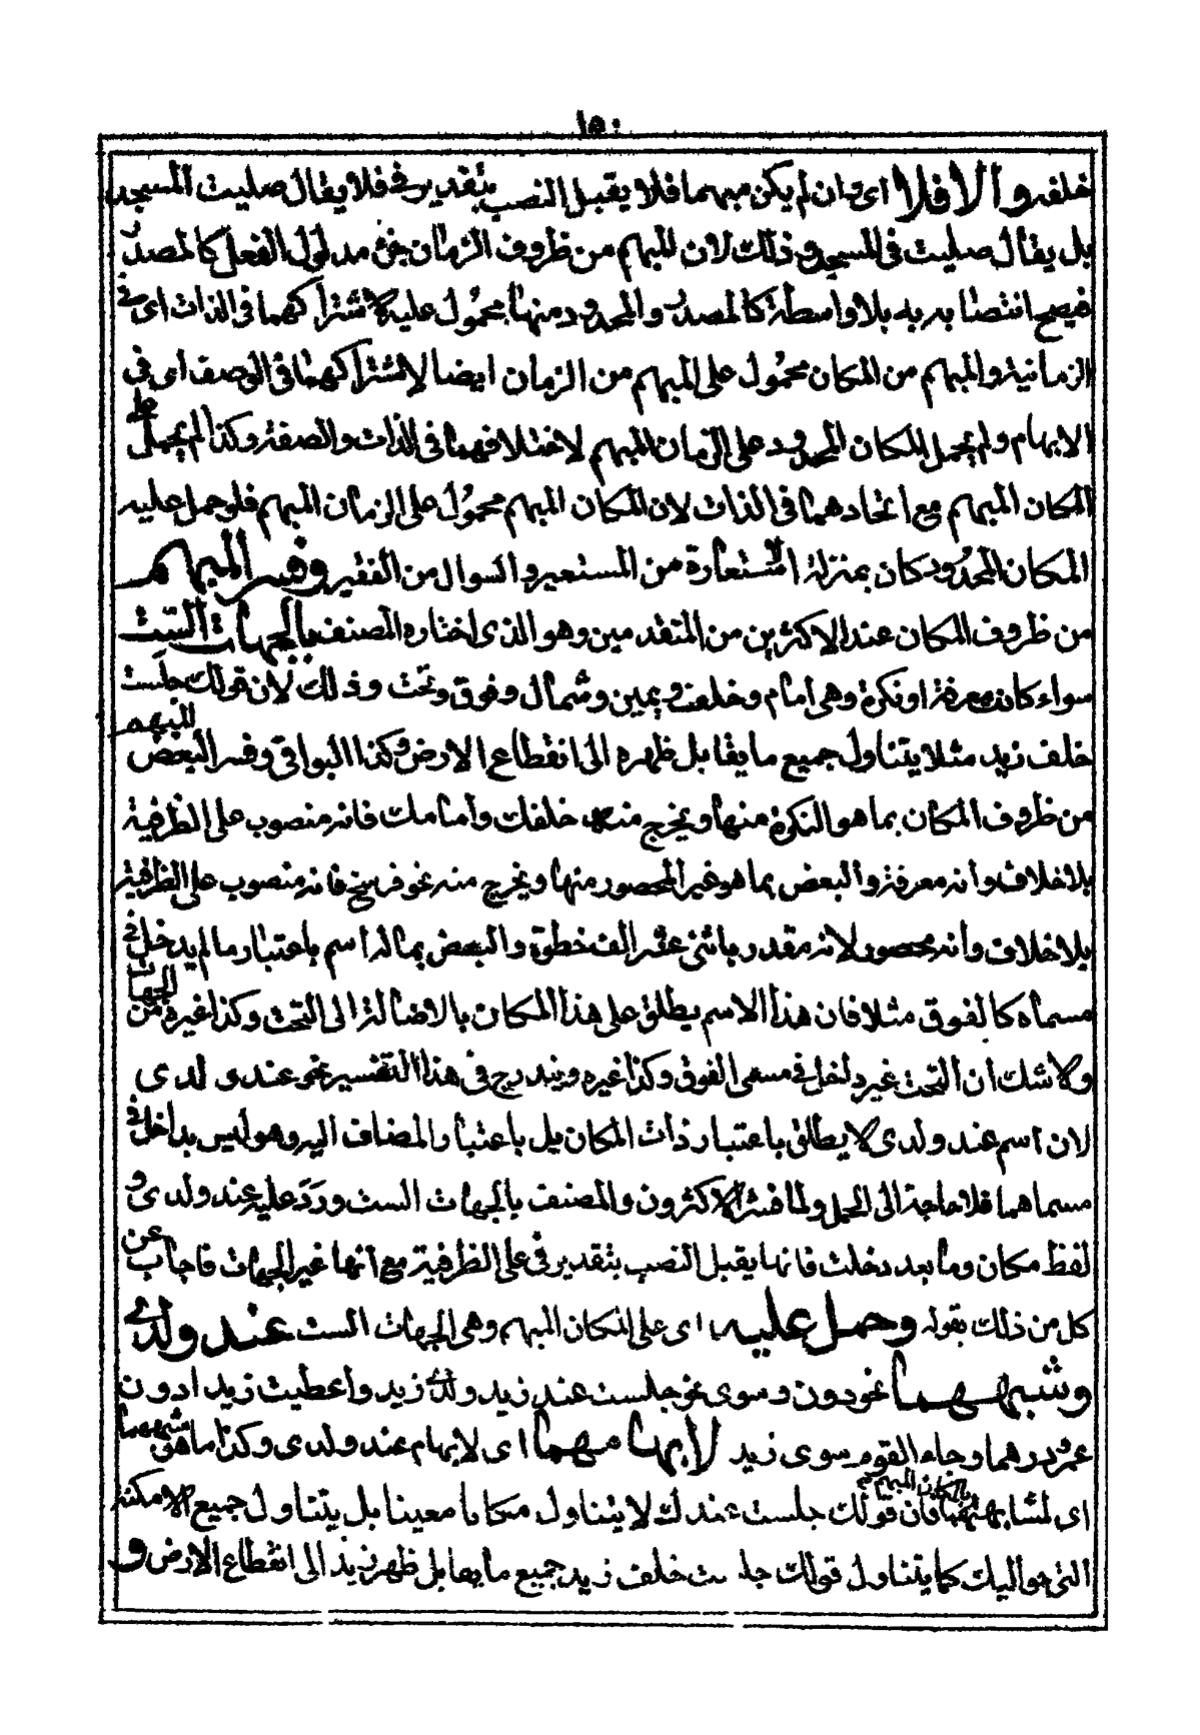 ١٥٠
خلفه والا فلا اى وان لم يكن مبهما فلا يقبل النصب بتقدير فى فلا يقال صليت المسجد
بل يقال صليت فى المسجد وذلك لان المبهم من ظروف الزمان جزء مدلول الفعل كالمصدر
فيصح انتصابه به بلا واسطة كالمصدر والمحدود منها محمول عليه لاشتراكهما فى الذات اى فى
الزمانية والمبهم من المكان محمول على المبهم من الزمان ايضا لاشتراكهما فى الوصف اى فى
الابهام ولم يحمل المكان المحدود على الزمان المبهم لاختلافهما فى الذات والصفة وكذا لم يحمل على
المكان المبهم مع اتحادهما فى الذات لان المكان المبهم محمول على الزمان المبهم فلو حمل عليه
المكان المحدود كان بمنزلة الاستعارة من المستعير والسوال من الفقير وفسر المبهم
من ظروف المكان عند الاكثرين من المتقدمين وهو الذى اختاره المصنف بالجهات الست
سواء كان معرفة او نكرة وهى امام وخلف ويمين وشمال وفوق وتحت وذلك لان قولك جلست
خلف زيد مثلا يتناول جميع ما يقابل ظهره الى انقطاع الارض وكذا البواقى وفسر البعض المبهم
من ظروف المكان بما هو النكرة منها ويخرج منه خلفك وامامك فانه منصوب على الظرفية
بلا خلاف وانه معرفة والبعض بما هو غير المحصور منها ويخرج منه نحو فرسخ فانه منصوب على الظرفية
بلا خلاف وانه محصور لانه مقدر باثنى عشر الف خطوة والبعض بماله اسم باعتبار ما لم يدخل فى
مسماه كالفوق مثلا فان هذا الاسم يطلق على هذا المكان بالاضافة الى التحت وكذا غيره من الجهات
ولا شك ان التحت غير داخل فى مسمى الفوق وكذا غيره ويندرج فى هذا التفسير نحو عند و لدى
لان اسم عند ولدى لا يطلق باعتبار ذات المكان بل باعتبار المضاف اليه وهو ليس بداخل فى
مسماهما فلا حاجة الى الحمل ولما فسر الاكثرون والمصنف بالجهات الست ورد عليه عند ولدى و
لفظ مكان وما بعد دخلت فانها يقبل النصب بتقدير فى على الظرفية مع انها غير الجهات فاجاب عن
كل من ذلك بقوله وحمل عليه اى على المكان المبهم وهى الجهات الست عند ولدى
وشبههما نحو دون وسوى نحو جلست عند زيد ولدى زيد واعطيت زيدا دون
عمرو درهما وجاء القوم سوى زيد لابهامهما اى لابهام عند ولدى وكذا ما هى شبههما
اى لمشابهتهما بالمكان المبهم فان قولك جلست عندك لا يتناول مكانا معينا بل يتناول جميع الامكنة
التى حواليك كما يتناول قولك جلست خلف زيد جميع ما يقابل ظهر زيد الى انقطاع الارض و